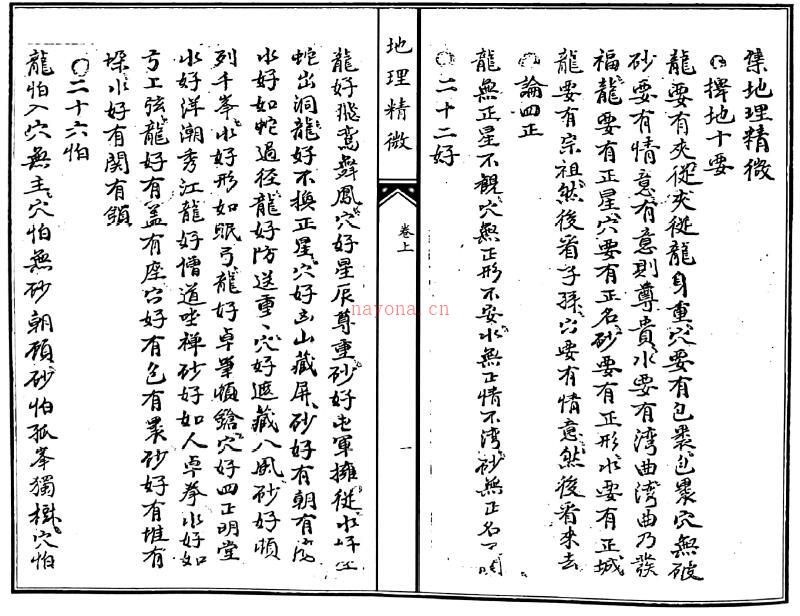 集地理精微
擇地十要
龍要有夾從夾從龍身重穴要有包裹包裹穴無破
砂要有情意有意則尊貴水要有湾曲湾曲乃發
福龍要有正星穴要有正名砂要有正形水要有正城
龍要有宗祖然後看子孫穴要有情意然後看來去
論四正
龍無正星不観穴無正形不安水無正情不湾砂無正名不
二十二好
地理精微
卷上
一
龍好飛鸞舞鳳穴好星辰尊重砂好屯軍擁從水好
蛇出洞龍好不換正星穴好出山藏屏砂好有朝有
水好如蛇過徑龍好防送重〻穴好遮藏八風砂好頓
列千峯水好形如眠弓龍好卓筆頓鎗穴好四正明堂
水好洋潮秀江龍好僧道坐禅砂好如人卓拳水好如
弓上弦龍好有蓋有座穴好有包有裹砂好有堆有
垛水好有関有鎖
〇二十六怕
龍怕入穴無主穴怕無砂朝顧砂怕孤峯獨樹穴怕
nayona.cn